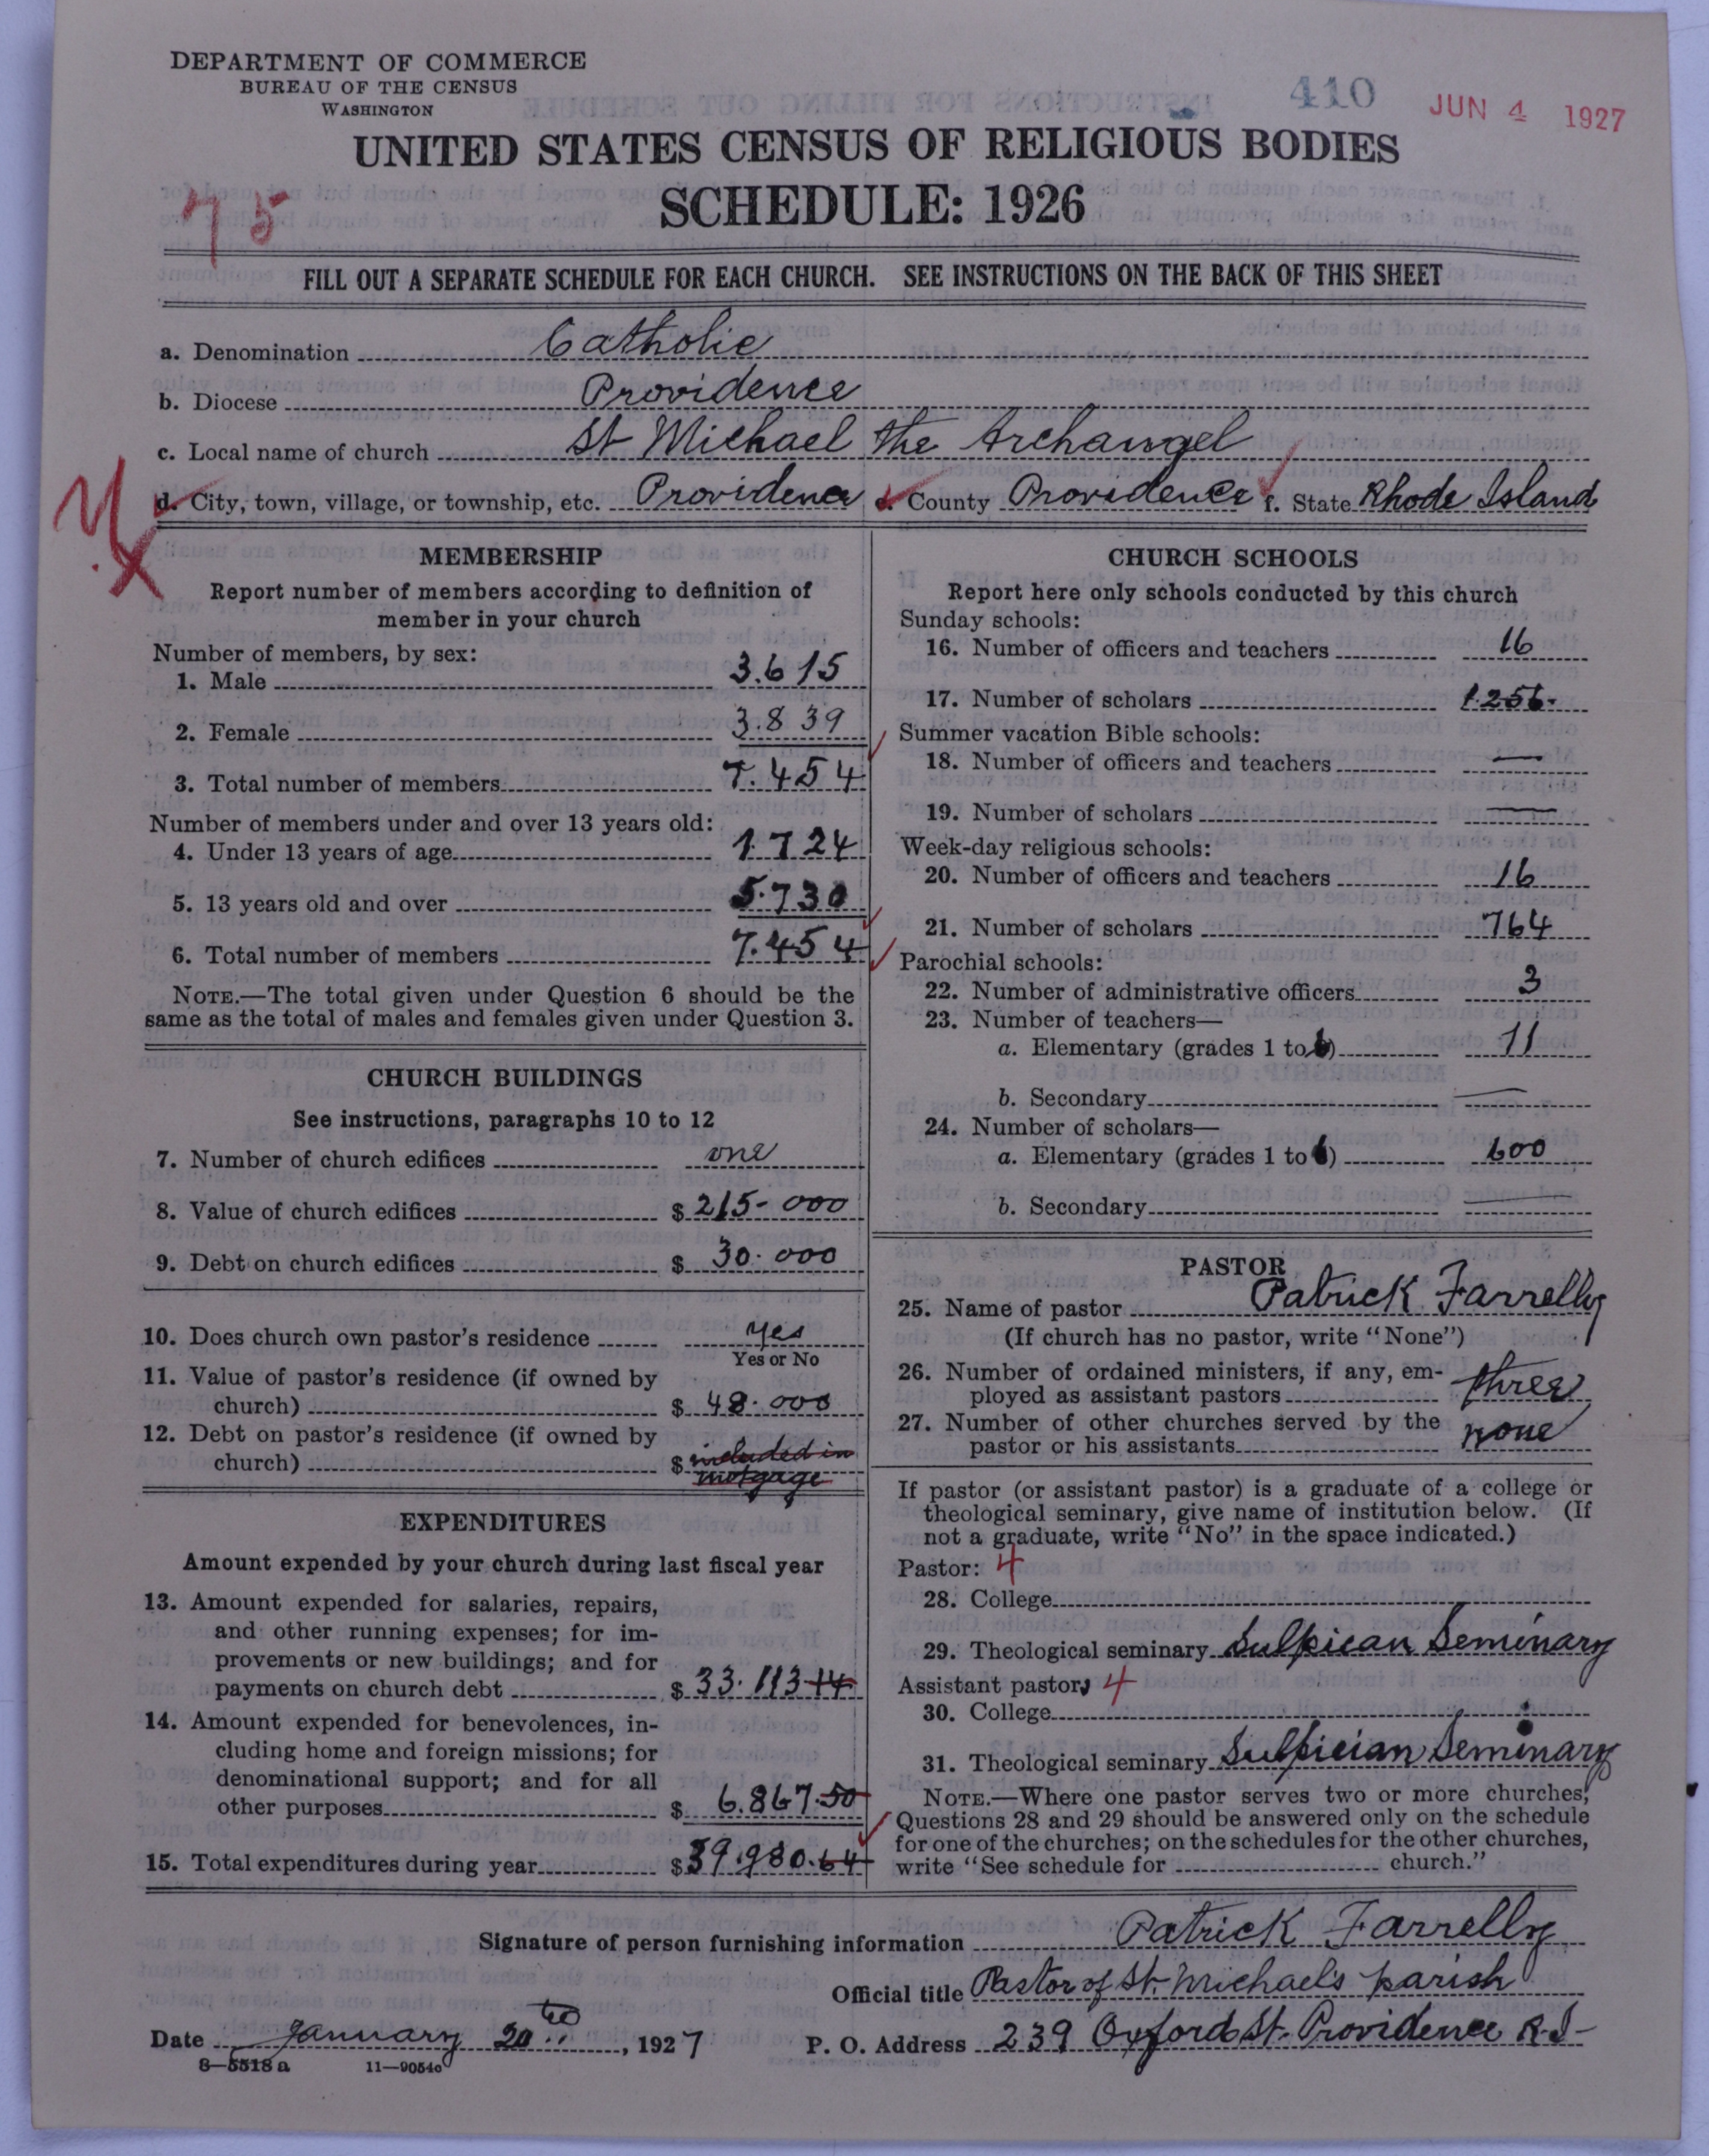 DEPARTMENT OF COMMERCE
BUREAU OF THE CENSUS
WASHINGTON
410
JUN 4 1927
UNITED STATES CENSUS OF RELIGIOUS BODIES
SCHEDULE: 1926
75
FILL OUT A SEPARATE SCHEDULE FOR EACH CHURCH. SEE INSTRUCTIONS ON THE BACK OF THIS SHEET
a. Denomination Catholic
b. Diocese Providence
c. Local name of church St Michael the Archangel
d. City, town, village, or township, etc. Providence e. County Providence f. State Rhode Island
MEMBERSHIP
Report number of members according to definition of
member in your church
Number of members, by sex:
1. Male 3.615
2. Female 3.839
3. Total number of members 7.454
Number of members under and over 13 years old:
4. Under 13 years of age 1.724
5. 13 years old and over 5.730
6. Total number of members 7.454
NOTE.—The total given under Question 6 should be the
same as the total of males and females given under Question 3.
CHURCH BUILDINGS
See instructions, paragraphs 10 to 12
7. Number of church edifices one
8. Value of church edifices $ 215-000
9. Debt on church edifices $ 30.000
10. Does church own pastor's residence yes
Yes or No
11. Value of pastor's residence (if owned by
church) $ 48.000
12. Debt on pastor's residence (if owned by
church) $ included in
motgage
EXPENDITURES
Amount expended by your church during last fiscal year
13. Amount expended for salaries, repairs,
and other running expenses; for im-
provements or new buildings; and for
payments on church debt $ 33.113.14
14. Amount expended for benevolences, in-
cluding home and foreign missions; for
denominational support; and for all
other purposes $ 6.867.50
15. Total expenditures during year $ 39.980.64
CHURCH SCHOOLS
Report here only schools conducted by this church
Sunday schools:
16. Number of officers and teachers 16
17. Number of scholars 1.256.
Summer vacation Bible schools:
18. Number of officers and teachers —
19. Number of scholars —
Week-day religious schools:
20. Number of officers and teachers 16
21. Number of scholars 764
Parochial schools:
22. Number of administrative officers 3
23. Number of teachers—
a. Elementary (grades 1 to 6) 11
b. Secondary —
24. Number of scholars—
a. Elementary (grades 1 to 6) 600
b. Secondary —
PASTOR
25. Name of pastor Patrick Farrelly
(If church has no pastor, write "None")
26. Number of ordained ministers, if any, em-
ployed as assistant pastors three
27. Number of other churches served by the
pastor or his assistants none
If pastor (or assistant pastor) is a graduate of a college or
theological seminary, give name of institution below. (If
not a graduate, write "No" in the space indicated.)
Pastor: 4
28. College
29. Theological seminary Sulpican Seminary
Assistant pastors 4
30. College
31. Theological seminary Sulpician Seminary
NOTE.—Where one pastor serves two or more churches,
Questions 28 and 29 should be answered only on the schedule
for one of the churches; on the schedules for the other churches,
write "See schedule for church."
Signature of person furnishing information Patrick Farrelly
Official title Pastor of St. Michael's parish
Date January 20th, 1927 P. O. Address 239 Oxford St. Providence R.I-
8—5518 a 11—90540